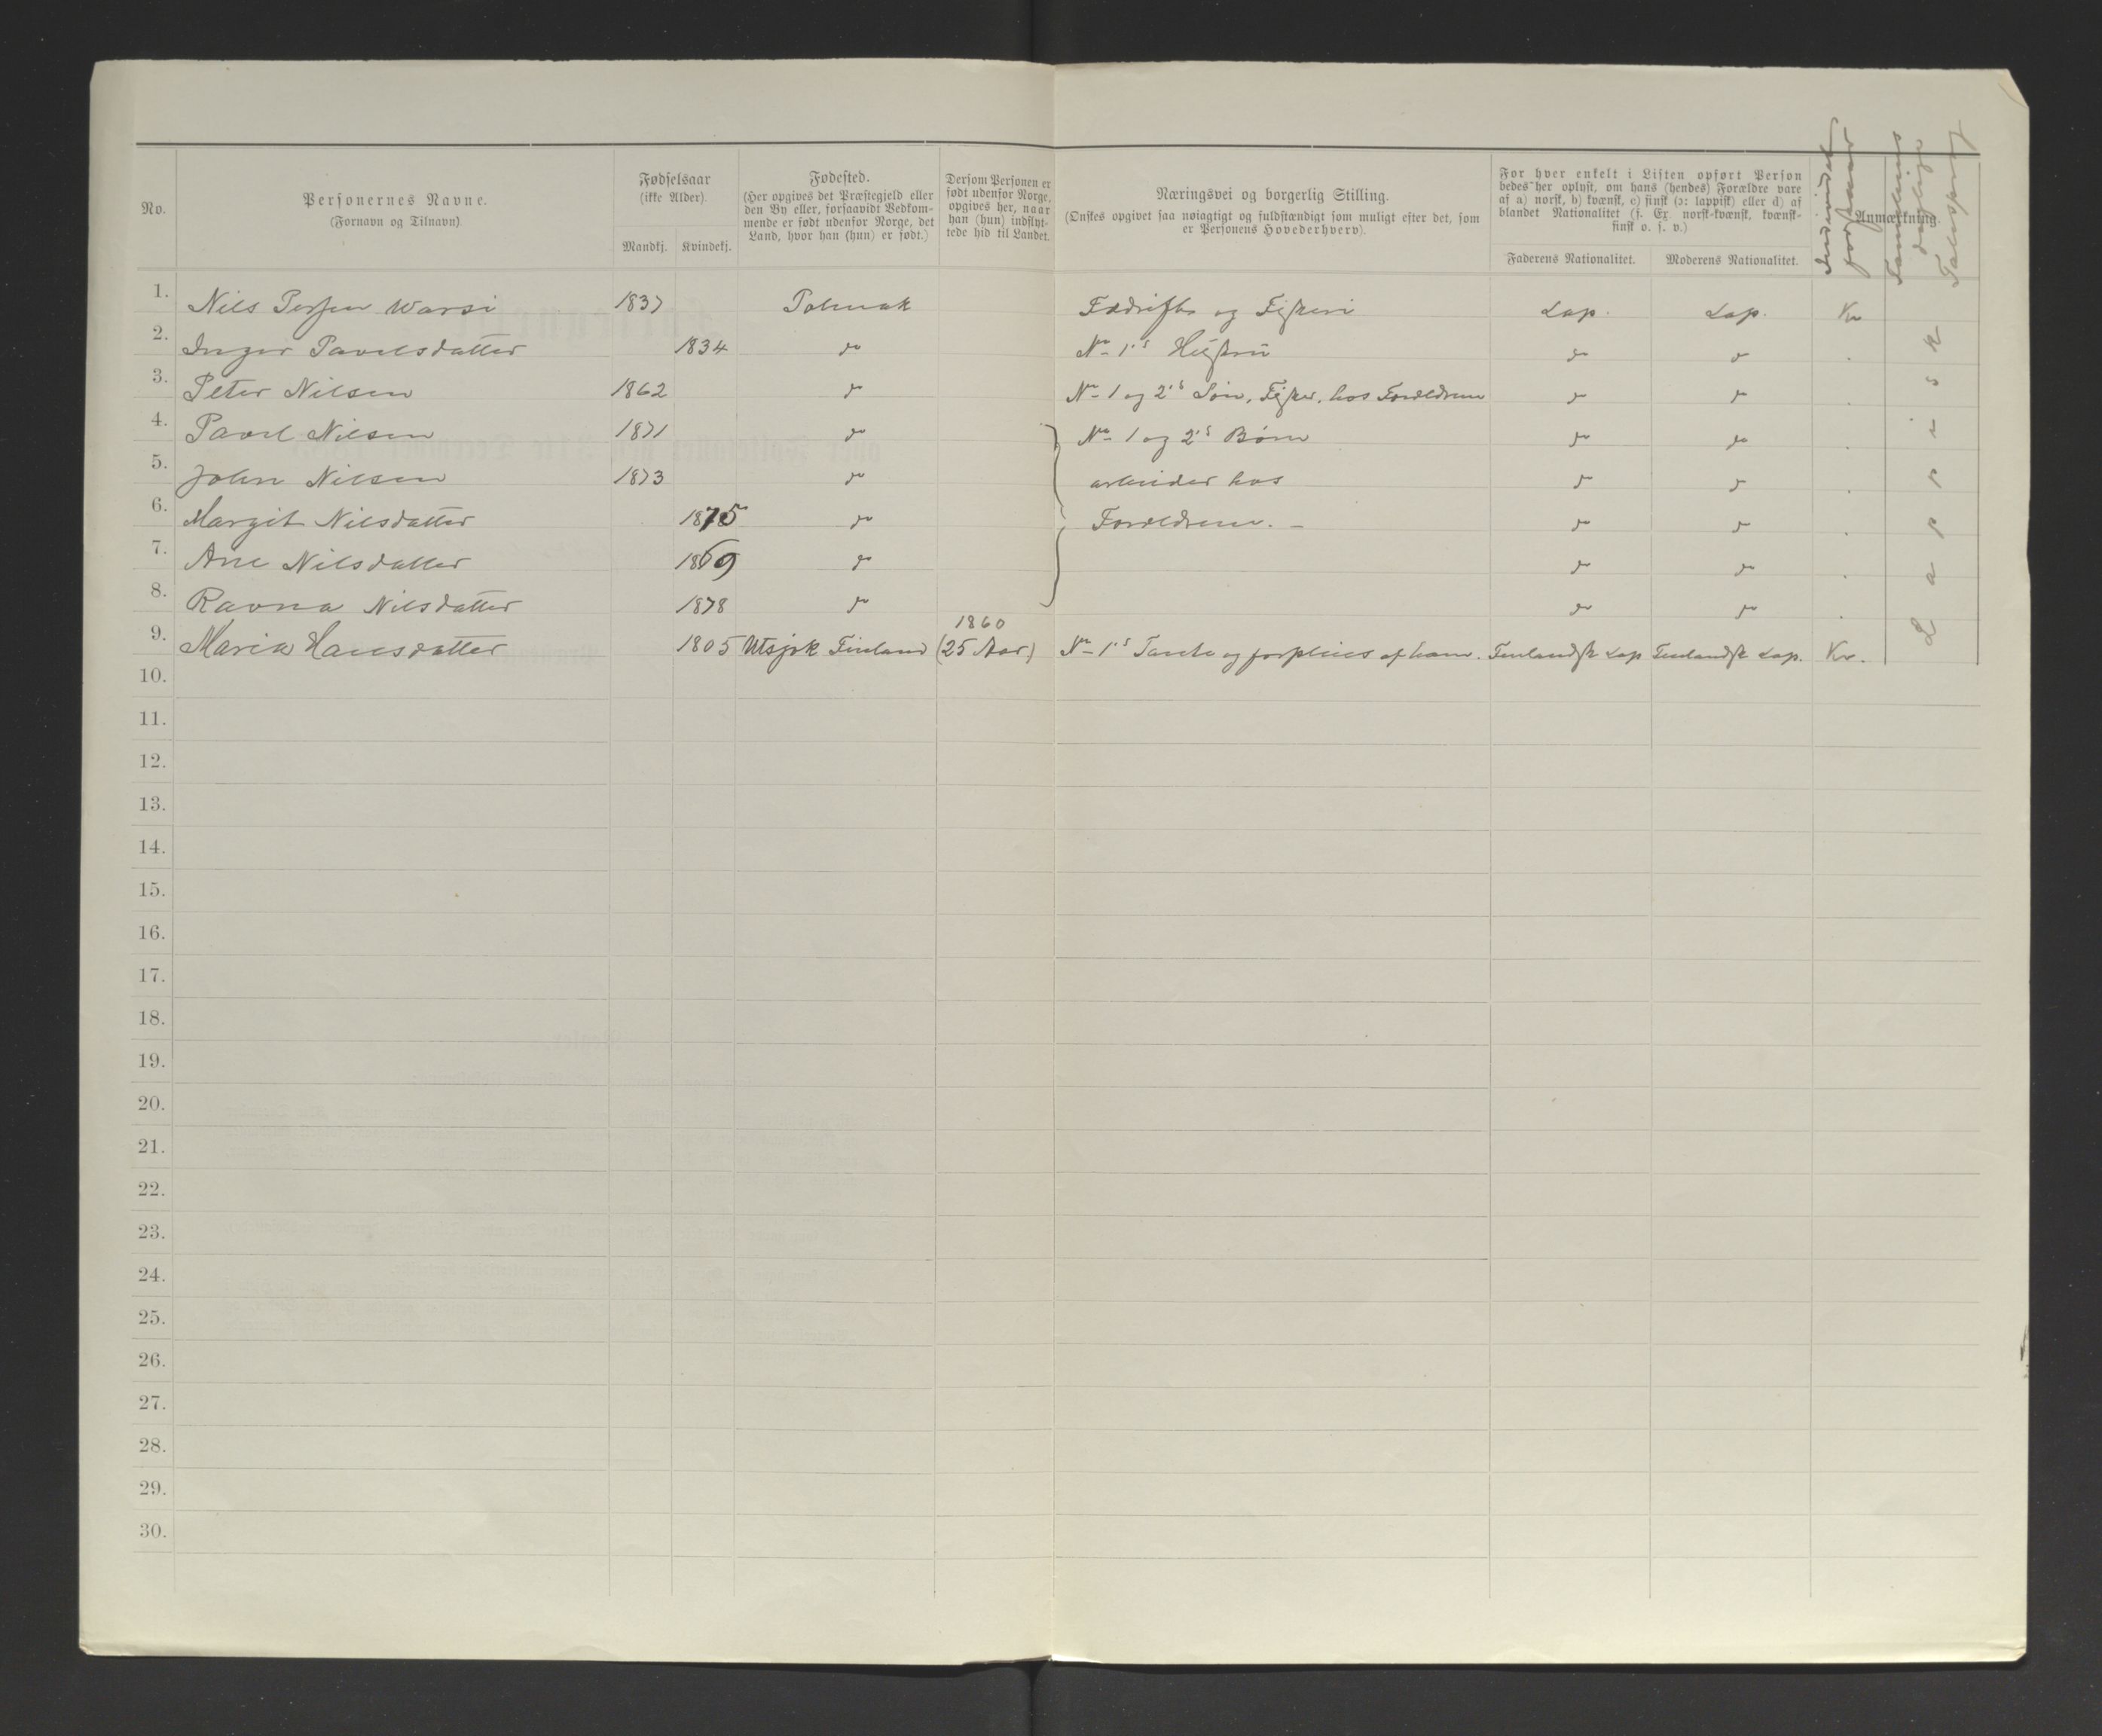 No.
Personernes Navne.
(Fornavn og Tilnavn)
Fødselsaar
(ikke Alder).
Mandkj. Kvindekj.
Fødested.
(Her opgives det Præstegjeld eller
den By eller, forsaavidt Vedkom-
mende er født udenfor Norge, det
Land, hvor han (hun) er født.)
Dersom Personen er
født udenfor Norge,
opgives her, naar
han (hun) indflyt-
tede hid til Landet.
Næringsvei og borgerlig Stilling.
(Ønskes opgivet saa nøiagtigt og fuldstændigt som muligt efter det, som
er Personens Hovederhverv).
For hver enkelt i Listen opført Person
bedes her oplyst, om hans (hendes) Forældre vare
af a) norsk, b) kvænsk, c) finsk (ɔ: lappisk) eller d) af
blandet Nationalitet (f. Ex norsk-kvænsk, kvænsk-
finsk o. s. v.)
Faderens Nationalitet. Moderens Nationalitet.
Anmærkning.
Individet
forstaaar
Familiens
daglige
Talesprog
1. Nils Persen Warsi 1837 Polmak Fædrift og Fiskeri Lap. Lap. Kv
2. Inger Pavelsdatter 1834 do No 1's Hustru do do
3. Peter Nilsen 1862 do No 1 og 2's Søn, Fisker, hos Forældrene do do
4. Pavel Nilsen 1871 do No 1 og 2's Børn do do
5. John Nilsen 1873 do arbeider hos do do
6. Margit Nilsdatter 1875 do Forældrene. - do do
7. Ane Nilsdatter 1869 do do do
8. Ravna Nilsdatter 1878 do do do
1860
9. Maria Hansdatter 1805 Utsjok Finland (25 Aar) No 1's Tante og forpleies af ham. Finlandsk Lap Finlandsk Lap. Kv.
Lappisk
10.
11.
12.
13.
14.
15.
16.
17.
18.
19.
20.
21.
22.
23.
24.
25.
26.
27.
28.
29.
30.